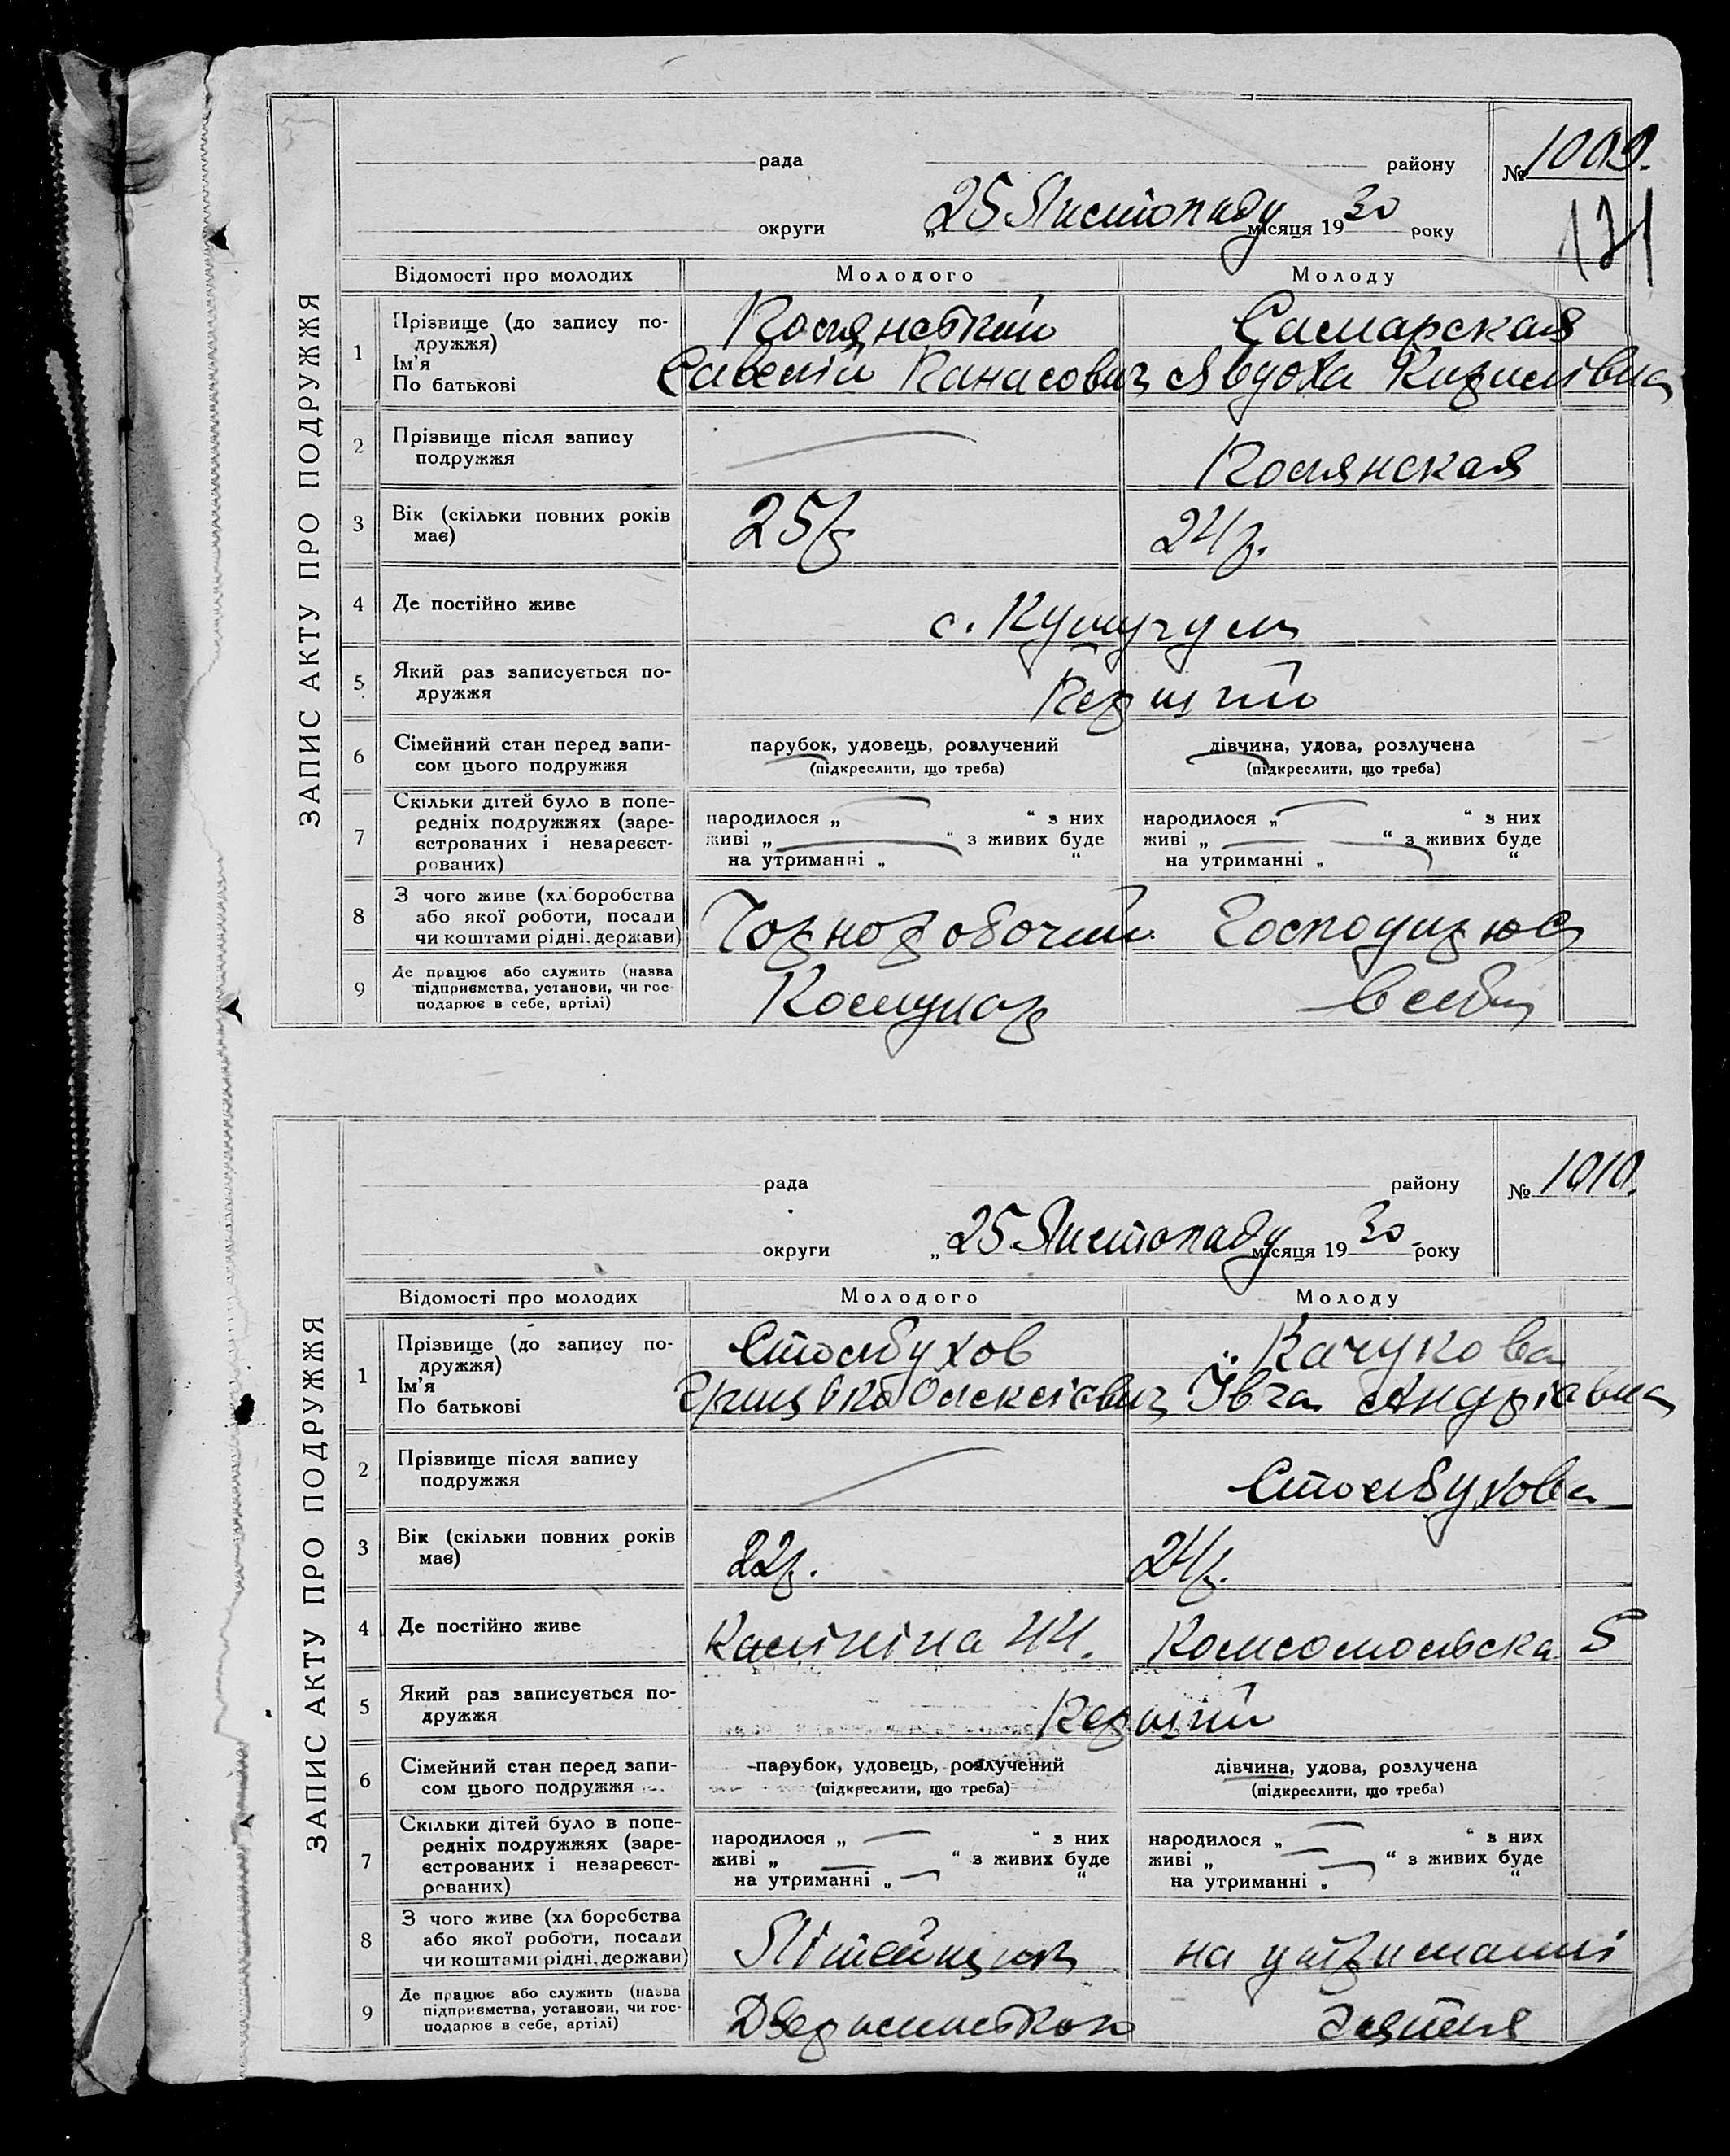 ЗАПИС АКТУ ПРО ПОДРУЖЖЯ
рада району № 1009.
171
округи „25 Листопаду місяця 1930 року
Відомості про молодих Молодого Молоду
1 Прізвище (до запису по-
дружжя)
Ім'я
По батькові
Самарская
Савелій Панасович Явдоха Кирилівна
2 Прізвище після запису
подружжя
3 Вік (скільки повних років
має)
25 р 24 р.
4 Де постійно живе
с. Кушугум
5 Який раз записується по-
дружжя
Перший
6 Сімейний стан перед запи-
сом цього подружжя
парубок, удовець, розлучений
(підкреслити, що треба)
дівчина, удова, розлучена
(підкреслити, що треба)
7 Скільки дітей було в попе-
редніх подружжях (заре-
єстрованих і незареєст-
рованих)
народилося „ “ з них
живі „ “ з живих буде
на утриманні „ “
народилося „ “ з них
живі „ “ з живих буде
на утриманні „ “
8 З чого живе (хліборобства
або якої роботи, посади
чи коштами рідні, держави)
Чорноробочий Господарює
9 Де працює або служить (назва
підприємства, установи, чи гос-
подарює в себе, артілі)
Комунар
ЗАПИС АКТУ ПРО ПОДРУЖЖЯ
рада району № 1010.
округи „25 Листопаду місяця 1930 року
Відомості про молодих Молодого Молоду
1 Прізвище (до запису по-
дружжя)
Ім'я
По батькові
Столбухов Качукова
Грицько Олексієвич Ївга Андрієвна
2 Прізвище після запису
подружжя
Столбухова
3 Вік (скільки повних років
має)
22 р. 24 р.
4 Де постійно живе
Калініна 44. Комсомольська 5
5 Який раз записується по-
дружжя
Перший
6 Сімейний стан перед запи-
сом цього подружжя
парубок, удовець, розлучений
(підкреслити, що треба)
дівчина, удова, розлучена
(підкреслити, що треба)
7 Скільки дітей було в попе-
редніх подружжях (заре-
єстрованих і незареєст-
рованих)
народилося „ “ з них
живі „ “ з живих буде
на утриманні „ “
народилося „ “ з них
живі „ “ з живих буде
на утриманні „ “
8 З чого живе (хліборобства
або якої роботи, посади
чи коштами рідні, держави)
Літейщик на утриманні
9 Де працює або служить (назва
підприємства, установи, чи гос-
подарює в себе, артілі)